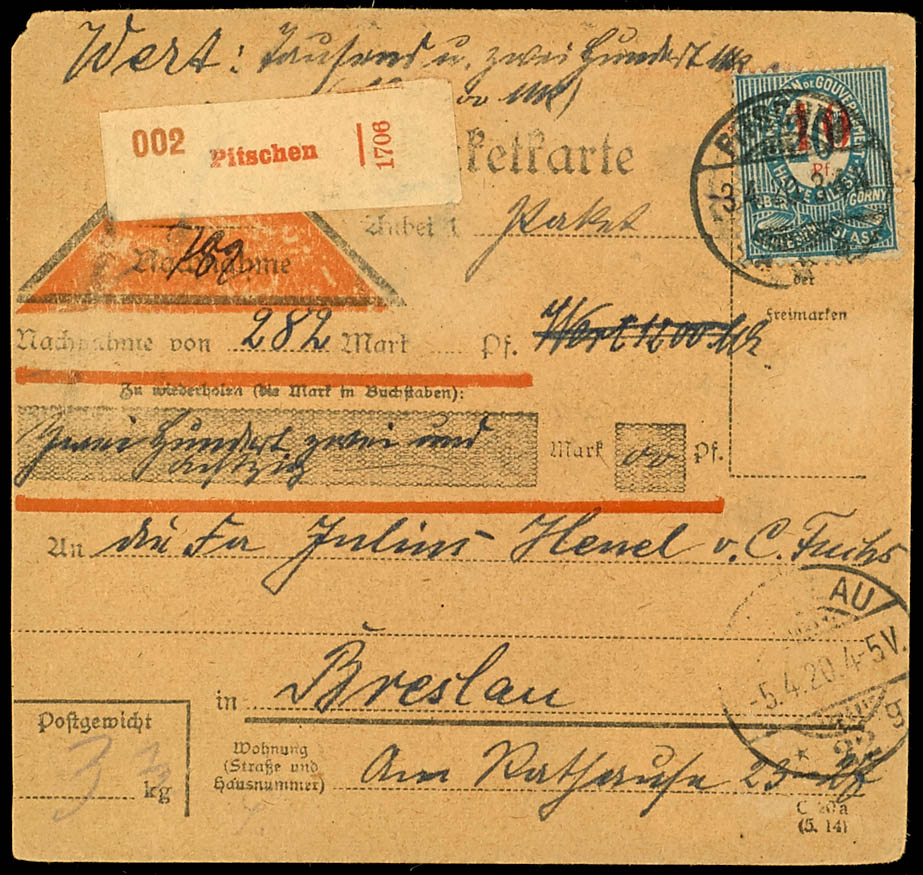 Wert: Tausend u. zwei Hundert M
002 Pitschen 1706
ketkarte
Anbei 1 Paket
HAUTE SILÉSIE
GÓRNY
ŚLĄSK
10
Pf.
3.4.20.
Nachnahme
der
Freimarken
Nachnahme von 282 Mark Pf. Wert 1200 Mk
Zu wiederholen (die Mark in Buchstaben):
Zwei Hundert zwei und
achtzig
Mark 00 Pf.
An die Fa Julius Henel v. C. Fuchs
LAU
-5.4.20.4-5V.
in Breslau
Postgewicht
3 kg
Wohnung
(Straße und
Hausnummer)
Am Rathause 23-27
C 20a
(5. 14)